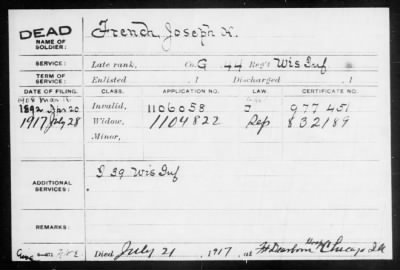 DEAD
NAME OF SOLDIER: French, Joseph N.
SERVICE: Late rank, Co. G 44 Reg't Wis Inf
TERM OF SERVICE: Enlisted , 1 Discharged , 1
DATE OF FILING. CLASS. APPLICATION NO. LAW. CERTIFICATE NO.
1908 Mar
1892 Apr 20 Invalid, 1106058 977451
1917 July 28 Widow, 1104822 Rep 832189
Minor,
ADDITIONAL SERVICES: I 39 Wis Inf
REMARKS:
Died July 21, 1917, at Ft Dearborn Chicago Ill